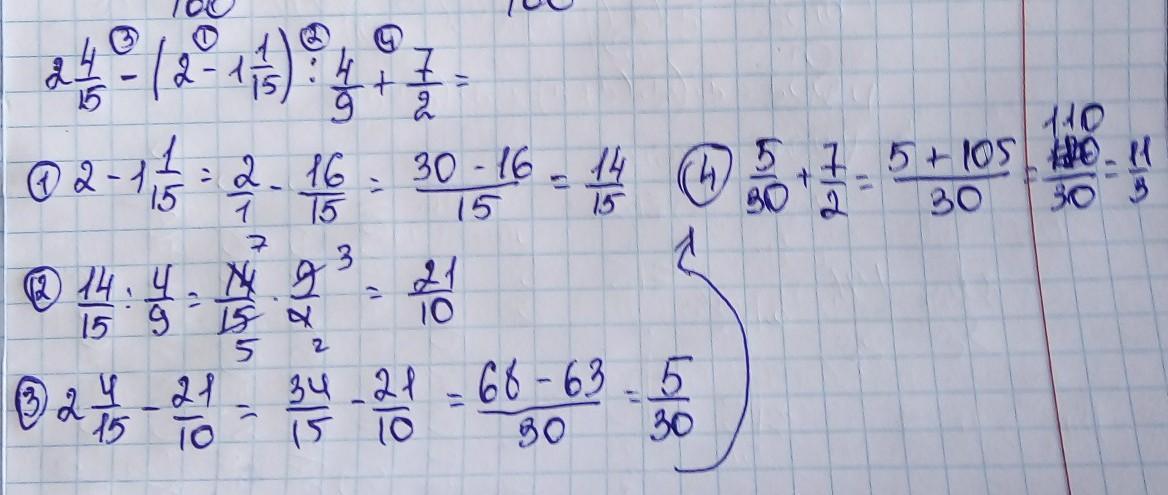 100 100
2 4/15 - (2 - 1 1/15) : 4/9 + 7/2 =
③ ① ② ④
① 2 - 1 1/15 = 2/1 - 16/15 = (30 - 16)/15 = 14/15
② 14/15 : 4/9 = 14/15 · 9/4 = 21/10
7 3
5 2
③ 2 4/15 - 21/10 = 34/15 - 21/10 = (68 - 63)/30 = 5/30
④ 5/30 + 7/2 = (5 + 105)/30 = 110/30 = 11/3